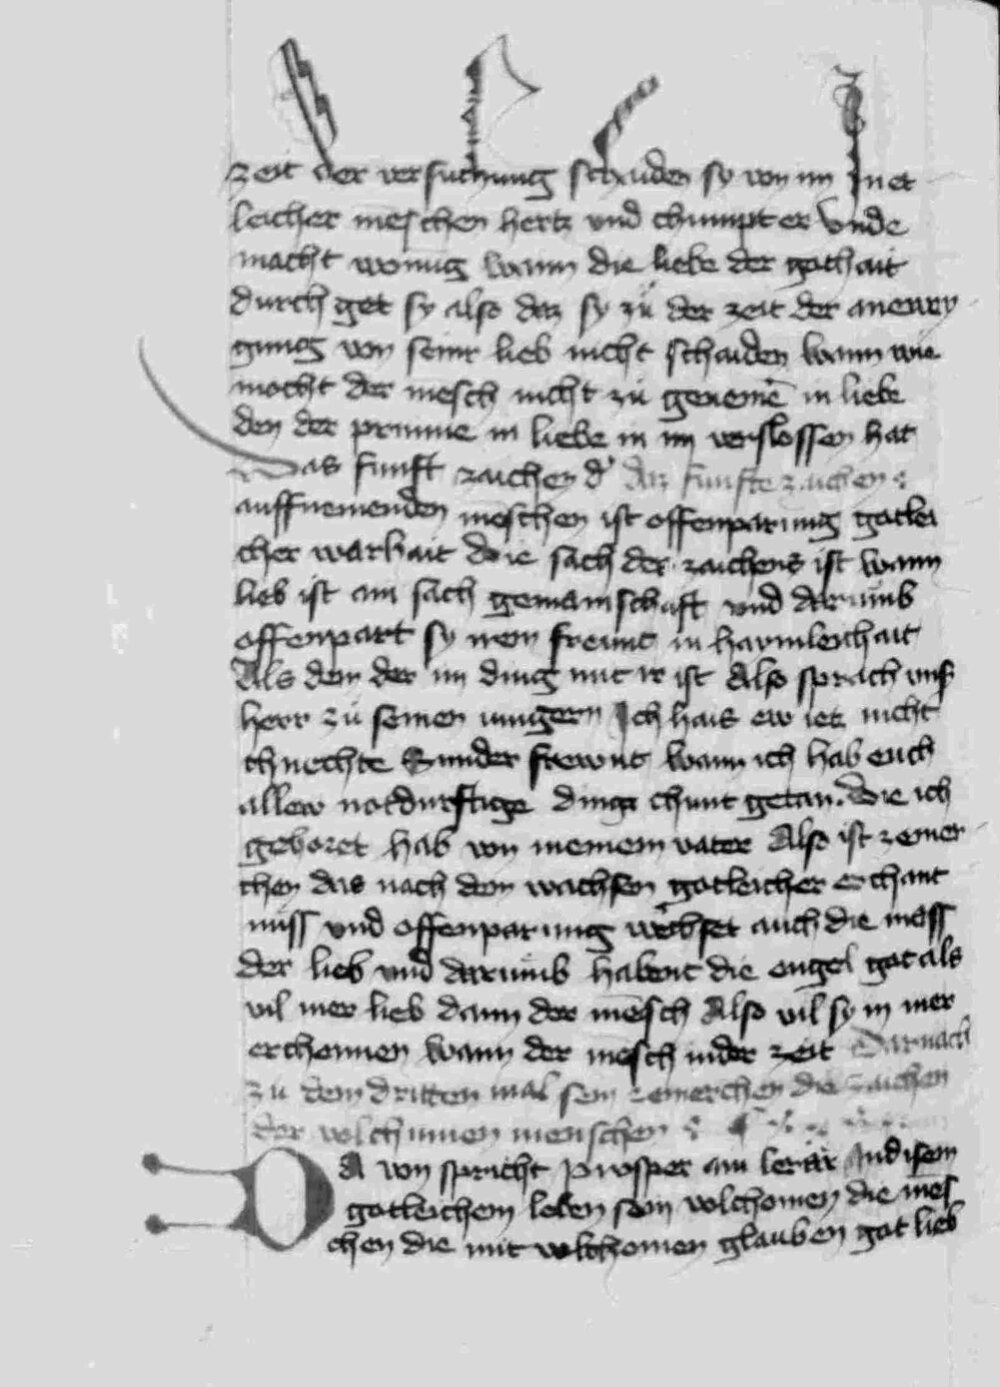 zeit der versuchung schaiden sy von im In et
leicher menschen hertz und chumpt er vnde
macht wonung wann die liebe der gothait
durch get sy also daz sy zu der zeit der anenvy
gung von seinr lieb nicht schaiden wann wie
mocht der mesch nicht zu genemē in liebe
den der primme in liebe in im verslossen hat
Das funft zaichen d' daz funfte zaichen
auffnemenden mēschen ist offenparung gotlei
cher warhait die sach der zaichens ist wann
lieb ist ain sach gemainschaft vnd darumb
offenpart sy irem freunt in haimleichait
Als dem der im ding mit ir ist Also sprach vnser
herr zu seinen iungern Ich hais ew iet nicht
chnechte Sunder frewnt wann ich hab euch
allew notdurftige dinge chunt getan. Die ich
gehoret hab von meinem vater Also ist ze mer
chen das nach dem wachsen gotleicher erchant
nuss vnd offenparung wechset auch die mass
der lieb vnd darumb habent die engel got als
vil mer lieb dann der mēsch Also vil sy in mer
erchennen wann der mēsch in der zeit Darnach
zu dem dritten mal sein ze merchen die zaichen
der volchumen menschen
DA von spricht prosper ain lerär In disem
gotleichem leben sein volchomen die mēs
chen die mit volchomen glauben got lieb